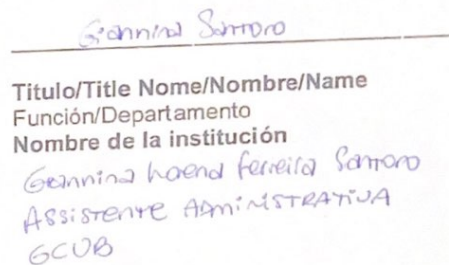 Giannina Santoro
Titulo/Title Nome/Nombre/Name
Función/Departamento
Nombre de la institución
Giannina Ferreira Santoro
Assistente Administrativa
GCUB